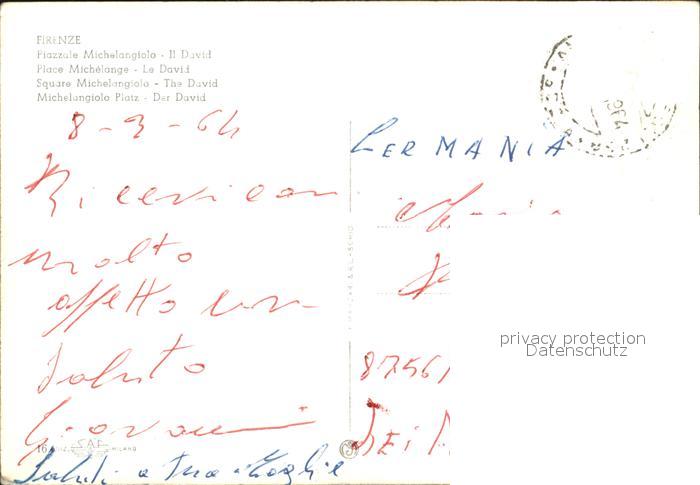 FIRENZE
Piazzale Michelangiolo - Il David
Place Michelange - Le David
Square Michelangiolo - The David
Michelangiolo Platz - Der David
8-3-64
Ricevi con
molto
affetto un
saluto
Giovanni
Saluti a tua Moglie
GERMANIA
8756
privacy protection
Datenschutz
SAF
MILANO